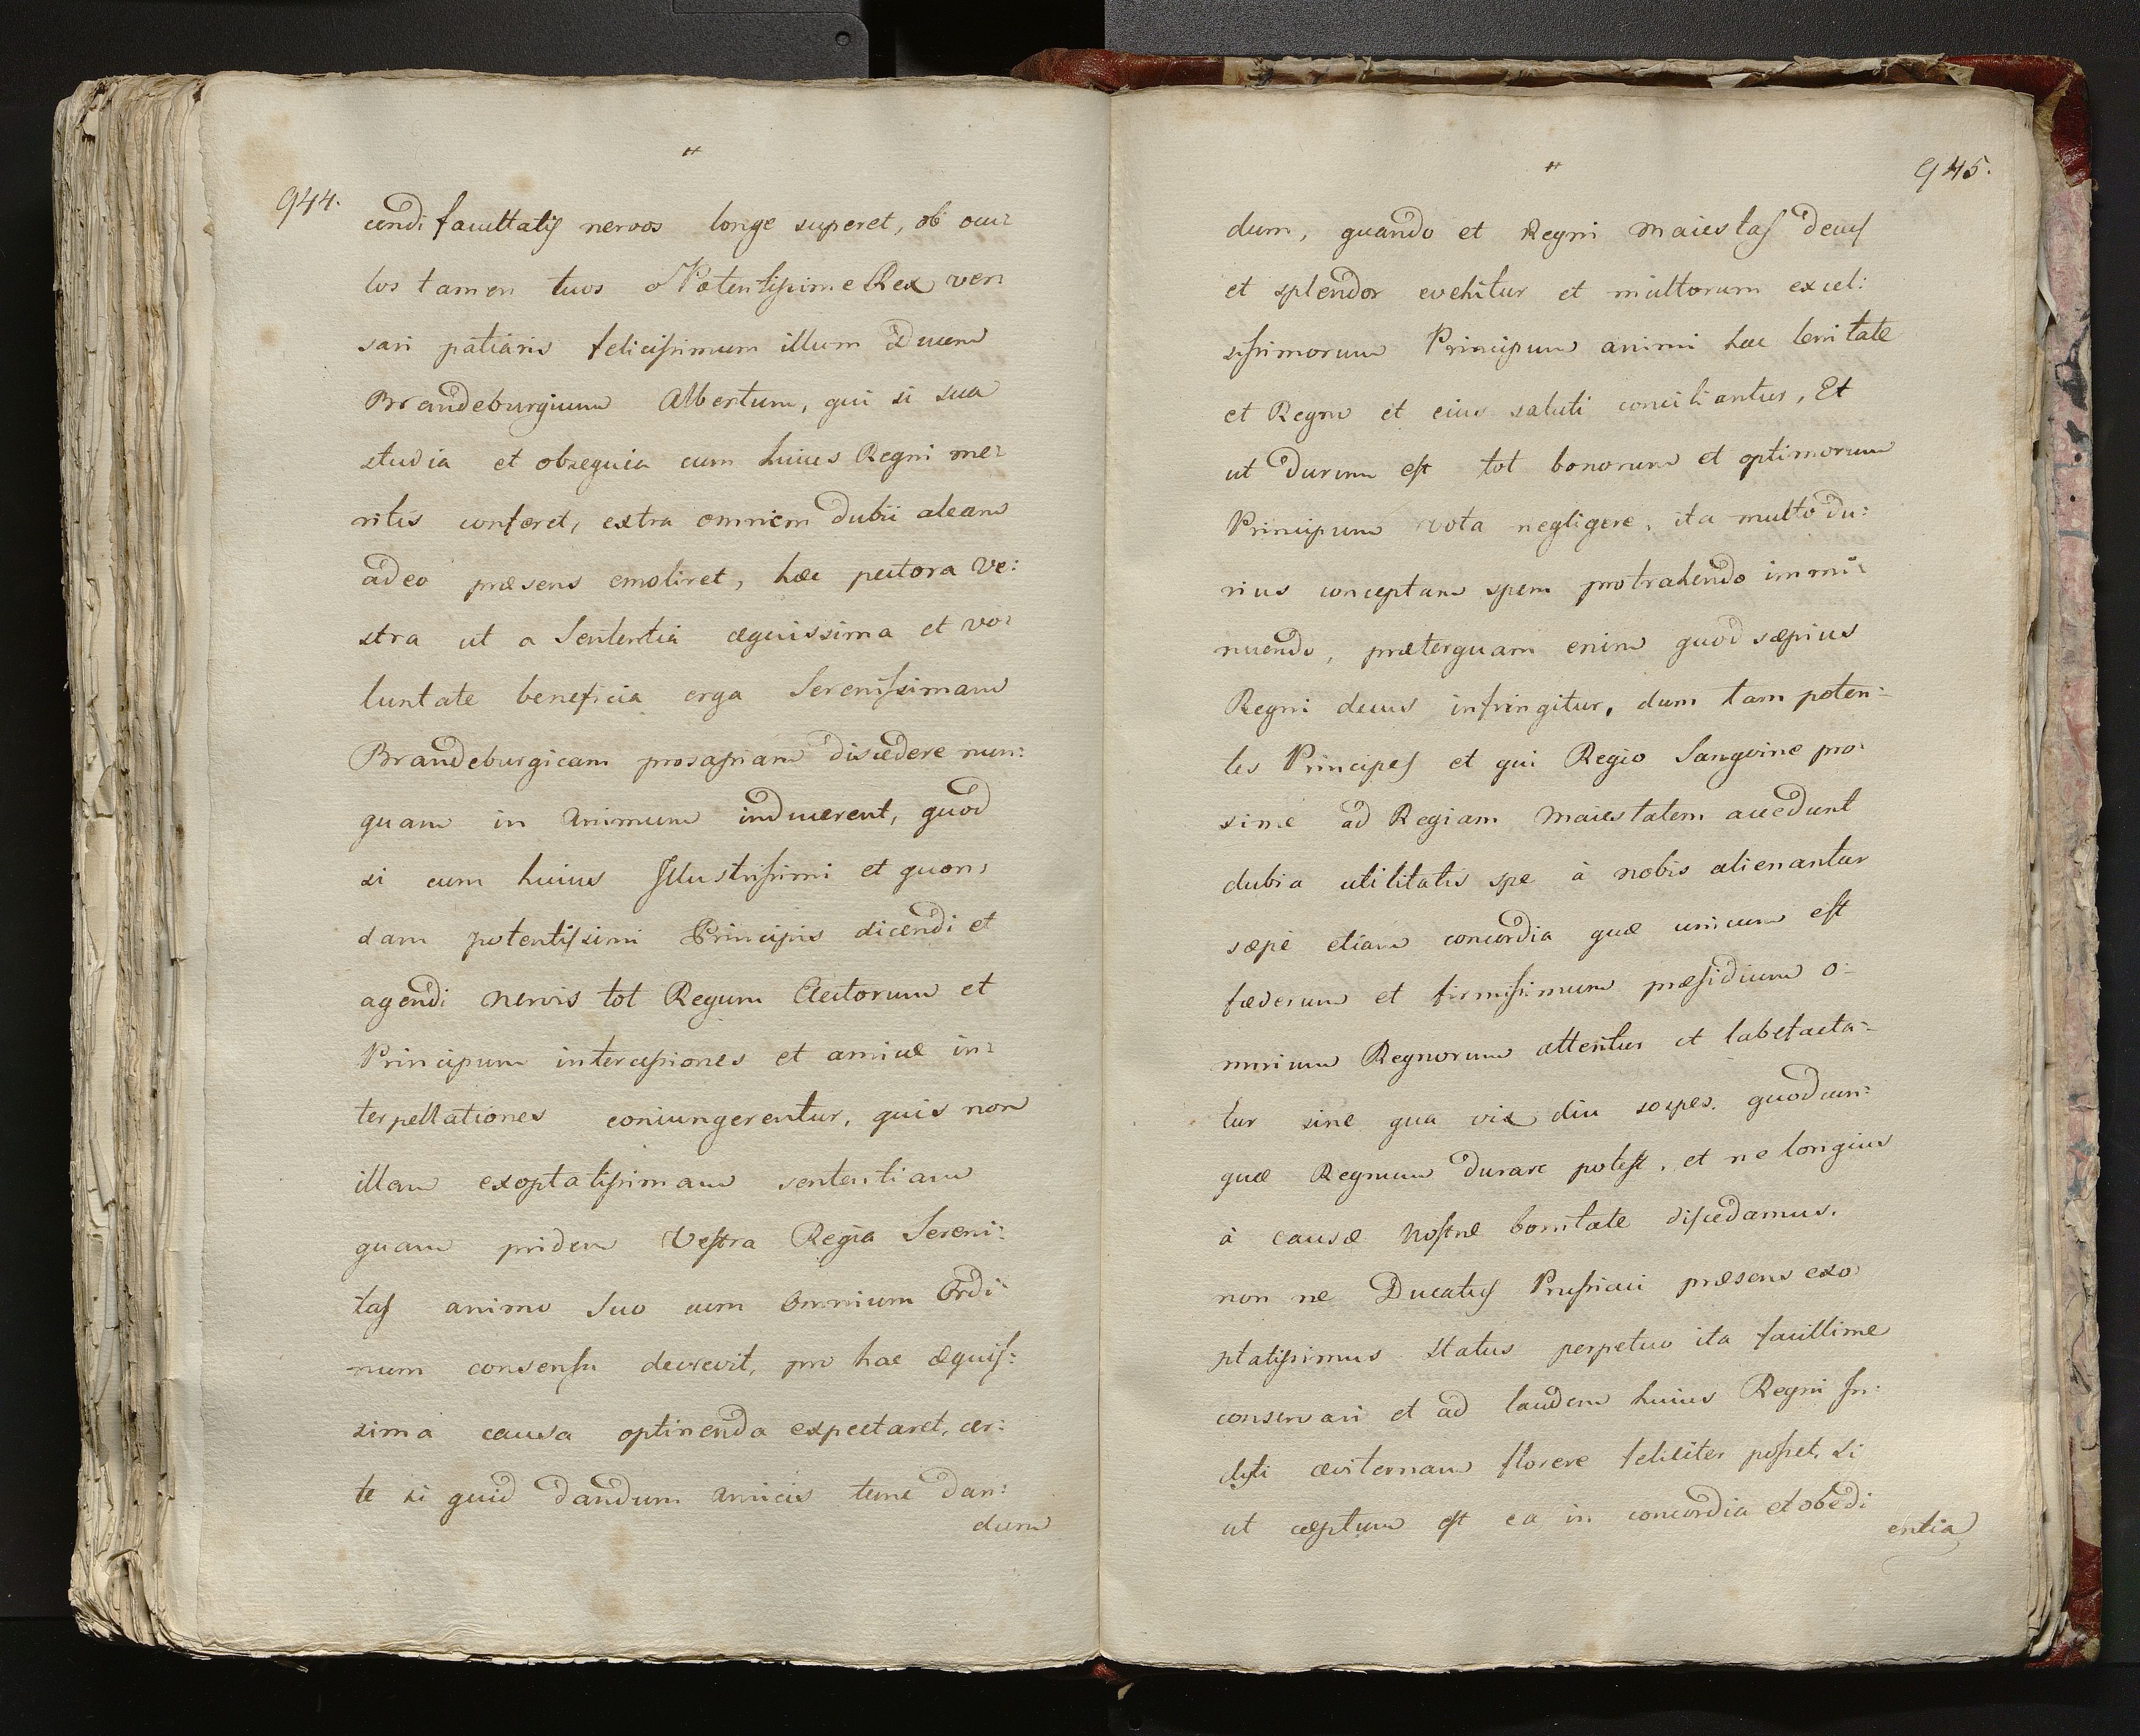 944.
cendi facultatis nervos longe superet, ob ocu:
los tamen tuos o Potentissime Rex ver:
sari patiaris felicissimum illum Ducem
Brandeburgium Albertum, qui si sua
studia et obsequia cum huius Regni me:
ritis conferet, extra omnem dubii aleam
adeo præsens emoliret, hæc pectora Ve:
stra ut a Sententia æquissima et vo:
luntate beneficia erga Serenissimam
Brandeburgicam prosapiam discedere nun:
quam in animum inducerent, quod
si cum huius Illustrissimi et quon:
dam potentissimi Principis dicendi et
agendi nervis tot Regum Electorum et
Principum intercessiones et amicæ in:
terpellationes coniungerentur, quis non
illam exoptatissimam sententiam
quam pridem Vestra Regia Sereni:
tas animo Suo cum Omnium Ordi
num consensu decrevit, pro hac æquis:
sima causa optinenda expectaret, cer:
te si quid dandum amicis tunc dan:
dum
945.
dum, quando et Regni Maiestas decus
et splendor evehitur et multorum excel:
sissimorum Principum animi hac lenitate
et Regno et eius saluti conciliantur, Et
ut durum est tot bonorum et optimorum
Principum vota negligere, ita multo du:
rius conceptam spem protrahendo immi:
nuendo, præterquam enim quod sæpius
Regni decus infringitur, dum tam poten:
tes Principes et qui Regio Sangvine pro:
xime ad Regiam Maiestatem accedunt
dubia utilitatis spe à nobis alienantur
sæpe etiam concordia quæ unicum est
fæderum et firmissimum præsidium o:
mnium Regnorum atteritur et labefacta:
tur sine qua vix diu sospes. quodcun:
quæ Regnum durare potest, et ne longius
à causæ Nostræ bonitate discedamus.
non ne Ducatus Prussiaci præsens exo
ptatissimus status perpetuo ita facillime
conservari et ad laudem huius Regni In:
cliti æviternam florere feliciter posset. Si
ut cæptum est ea in concordia et obedi
entia